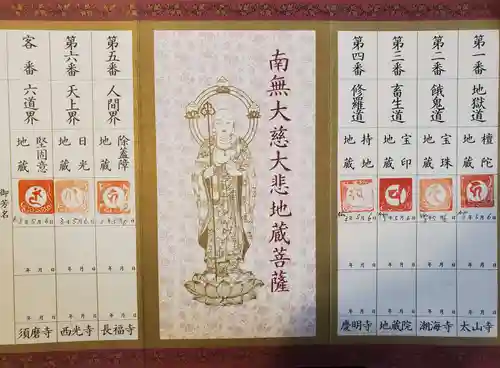 第一番 地獄道
檀陀
地蔵
年 月 日
太山寺
第二番 餓鬼道
宝珠
地蔵
年 月 日
潮海寺
第三番 畜生道
宝印
地蔵
年 月 日
地蔵院
第四番 修羅道
持地
地蔵
年 月 日
慶明寺
南無大慈大悲地蔵菩薩
第五番 人間界
除蓋障
地蔵
年 月 日
長福寺
第六番 天上界
日光
地蔵
年 月 日
西光寺
客番 六道界
堅固意
地蔵
年 月 日
須磨寺
御芳名